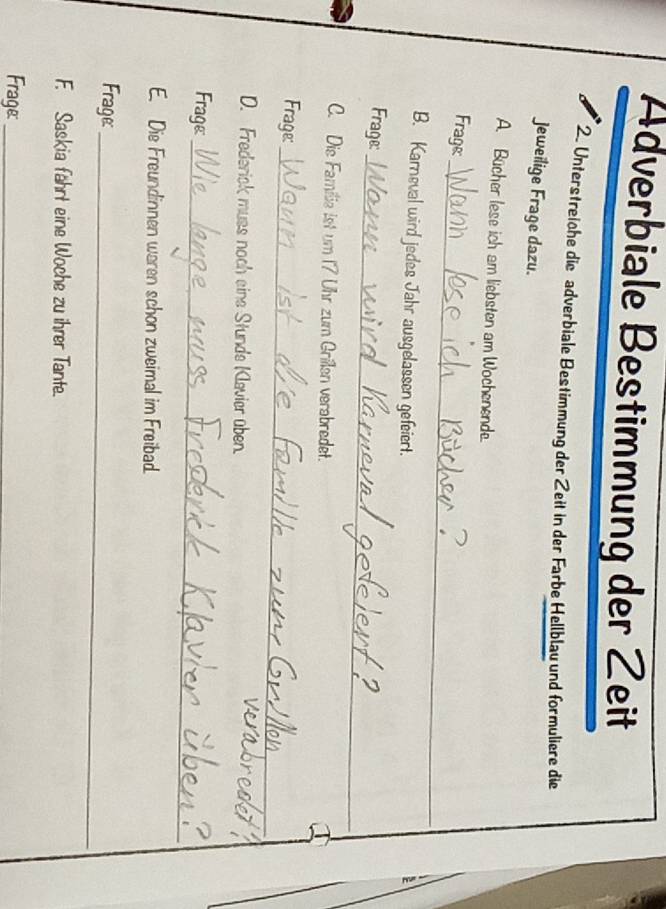 Adverbiale Bestimmung der Zeit
2. Unterstreiche die adverbiale Bestimmung der Zeit in der Farbe Hellblau und formuliere die
jeweilige Frage dazu.
A. Bücher lese ich am liebsten am Wochenende.
Frage: Wann lese ich Bücher?
B. Karneval wird jedes Jahr ausgelassen gefeiert.
Frage: Wann wird Karneval gefeiert?
C. Die Familie ist um 17 Uhr zum Grillen verabredet.
Frage: Wann ist die Familie zum Grillen
verabredet?
D. Frederick muss noch eine Stunde Klavier üben.
Frage: Wie lange muss Frederick Klavier üben?
E. Die Freundinnen waren schon zweimal im Freibad.
Frage:
F. Saskia fährt eine Woche zu ihrer Tante.
Frage: